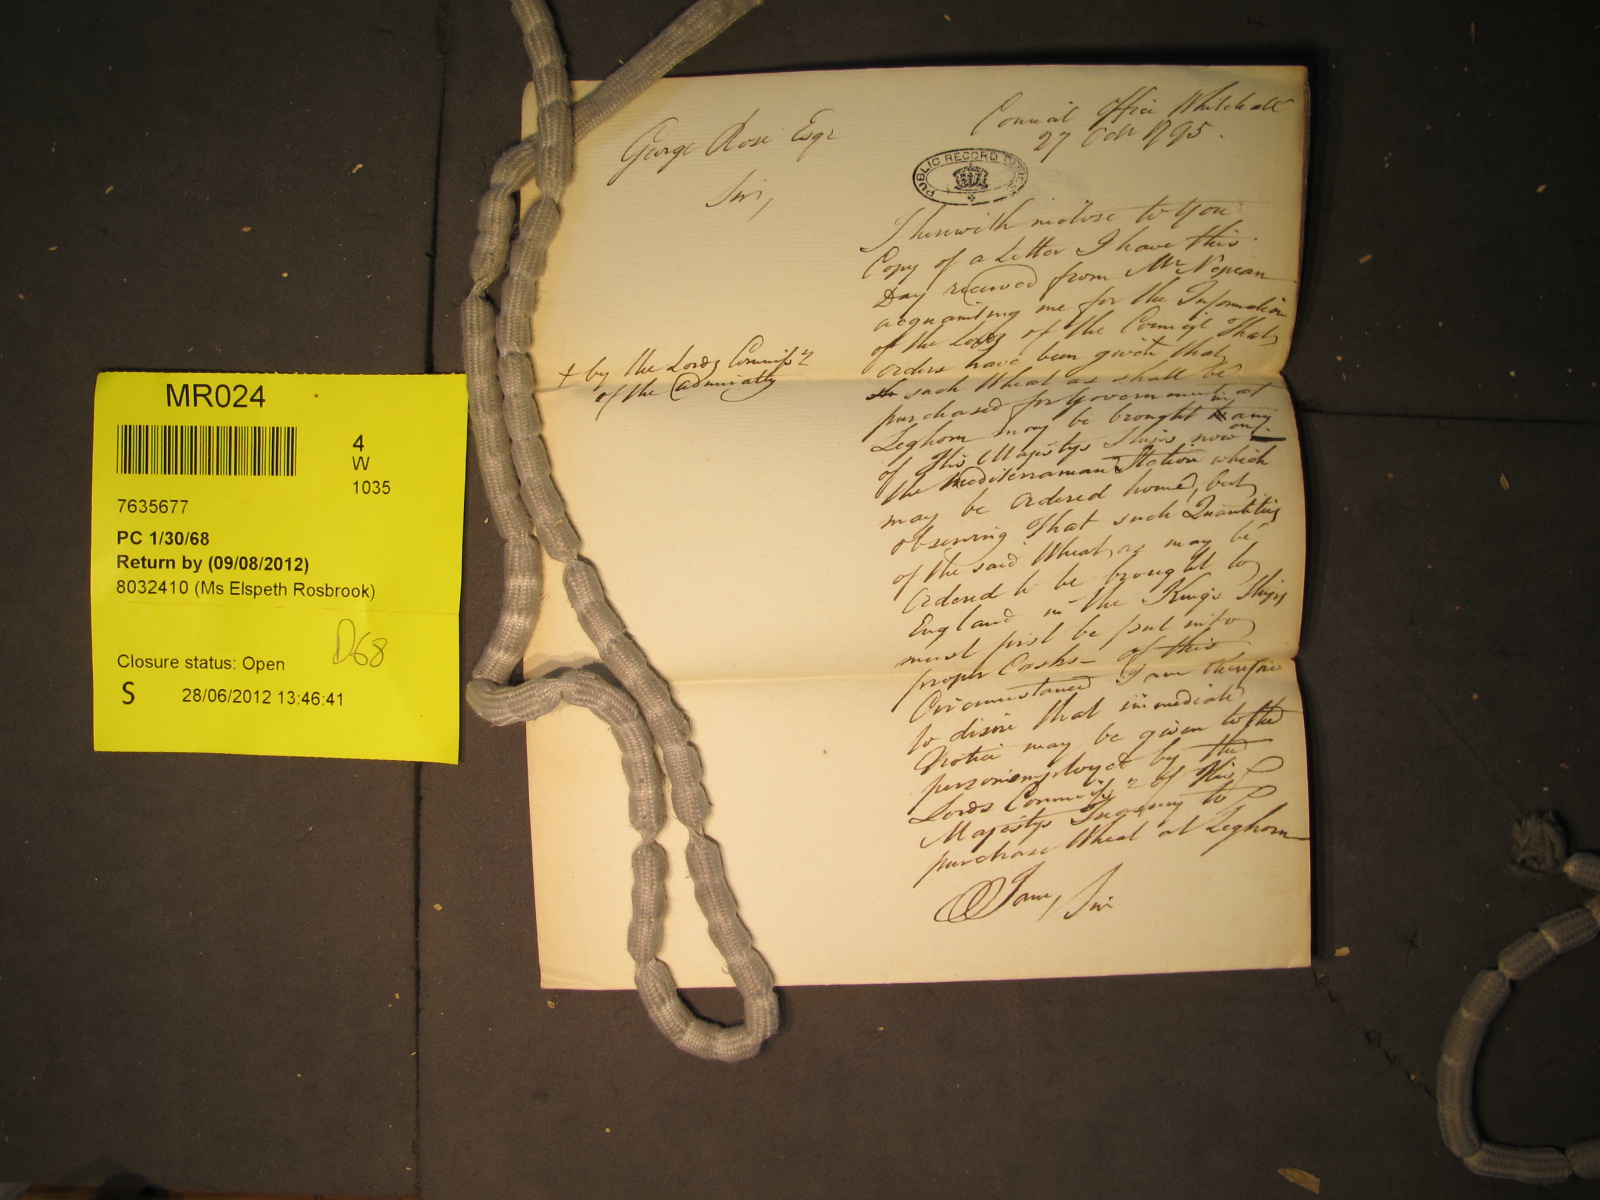 MR024
4
W
1035
7635677
PC 1/30/68
Return by (09/08/2012)
8032410 (Ms Elspeth Rosbrook)
D68
Closure status: Open
S 28/06/2012 13:46:41
Council Office Whitehall
27 Octr 1795.
George Rose Esqr
Sir,
PUBLIC RECORD OFFICE
I herewith inclose to You
Copy of a Letter I have this
Day received from Mr Nepean
acquainting me for the Information
of the Lords of the Council That
orders have been given that
+ by the Lords Commissrs
of the Admiralty
such Wheat as shall be
purchased for Government at
Leghorn may be brought in any
of His Majestys Ships now on
the Mediterranean Station which
may be ordered home, but
observing That such Quantities
of the said Wheat as may be
ordered to be brought to
England in the Kings Ships
must first be put into
proper Casks - Of this
Circumstance I am therefore
to desire that immediate
Notice may be given to the
persons employed by the
Lords Commissrs of His
Majestys Treasury to
purchase Wheat at Leghorn
I am, Sir